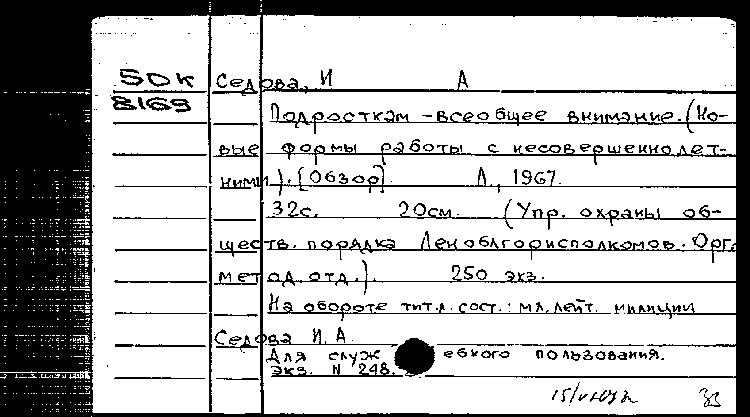 50К Седова, И А
8169
Подросткам - всеобщее внимание. (Но-
вые формы работы с несовершеннолет-
ними). [Обзор] Л., 1967.
32с. 20см. (Упр. охраны об-
ществ. порядка Леноблгорисполкомов. Орг.
метод. отд.). 250 экз.
На обороте тит.л. сост.: мл. лейт. милиции
Седова И. А.
Для служебного пользования.
Экз. N 248.